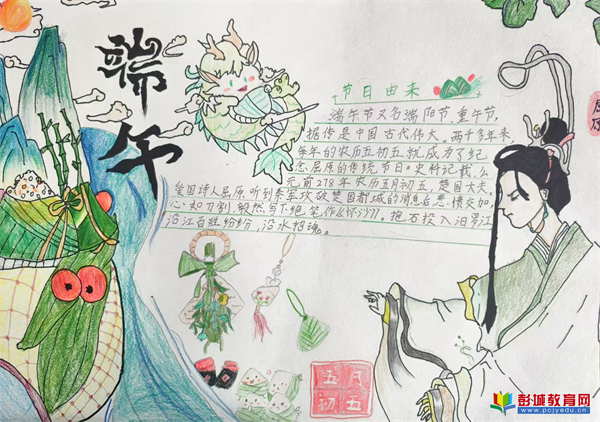 端午
节日由来
端午节又名端阳节,重午节,
据传是中国古代伟大,两千多年来
每年的农历五月初五就成为了纪
念屈原的传统节日。史料记载,公
元前278年农历五月初五,楚国大夫,
爱国诗人屈原听到秦军攻破楚国都城的消息后悲愤交加,
心如刀割,毅然写下绝笔作《怀沙》,抱石投入汨罗江
沿江百姓纷纷,沿水招魂。
屈原
五月
初五
彭城教育网
www.pcjyedu.cn